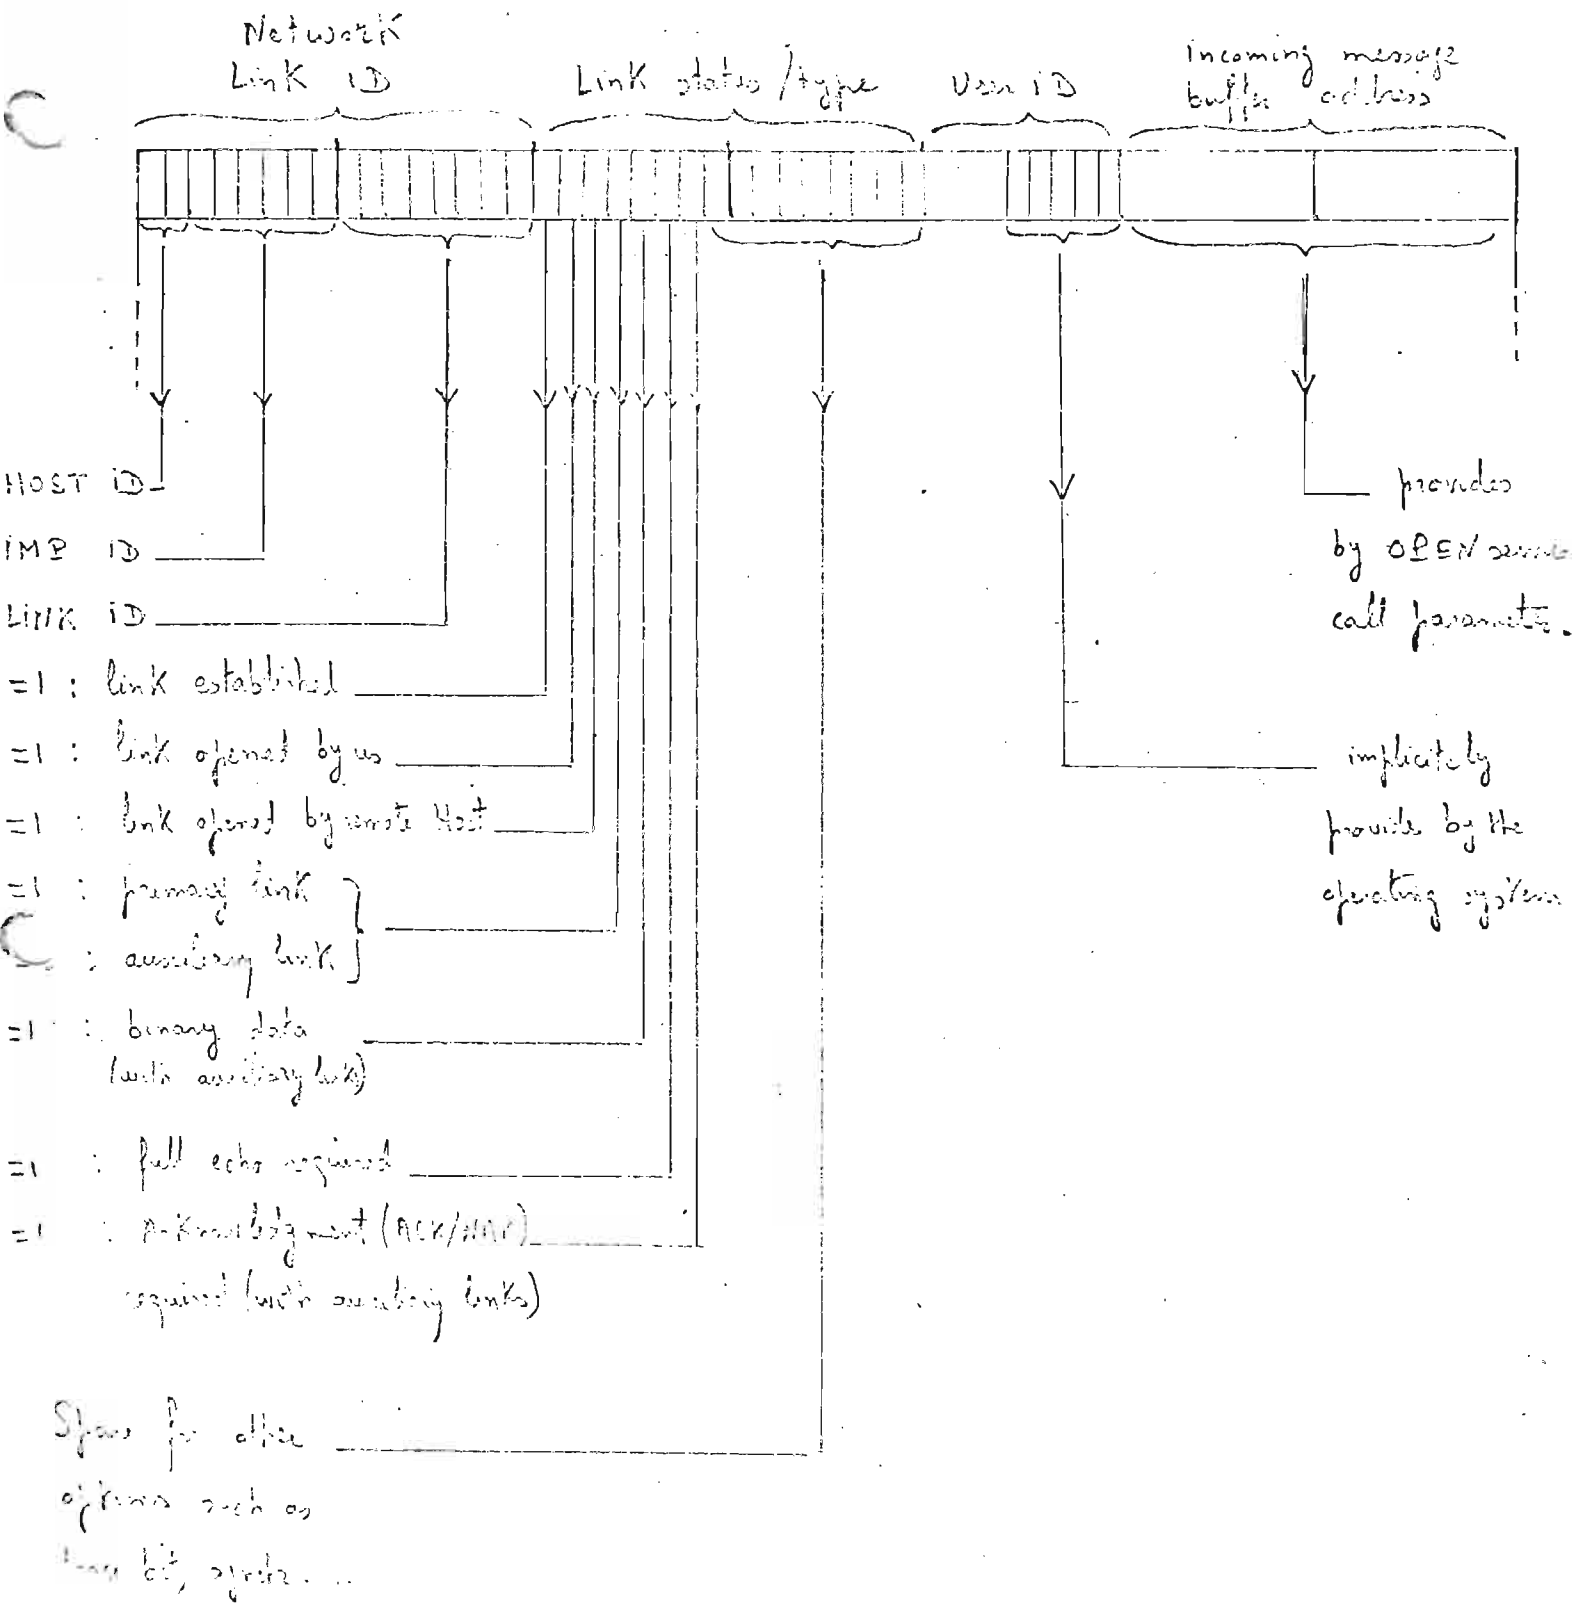 Network
Link iD
Link states/type
User iD
incoming message
buffer address
HOST iD
iMP iD
LiNK iD
=1 : link established
=1 : link opened by us
=1 : link opened by remote Host
=1 : primary link
: auxiliary link
=1 : binary data
(with auxiliary link)
=1 : full echo required
=1 : Aknowledgment (ACK/NAK)
required (with auxiliary links)
Spare for other
options such as
bit,
provides
by OPEN
call
implicitely
provide by the
operating system